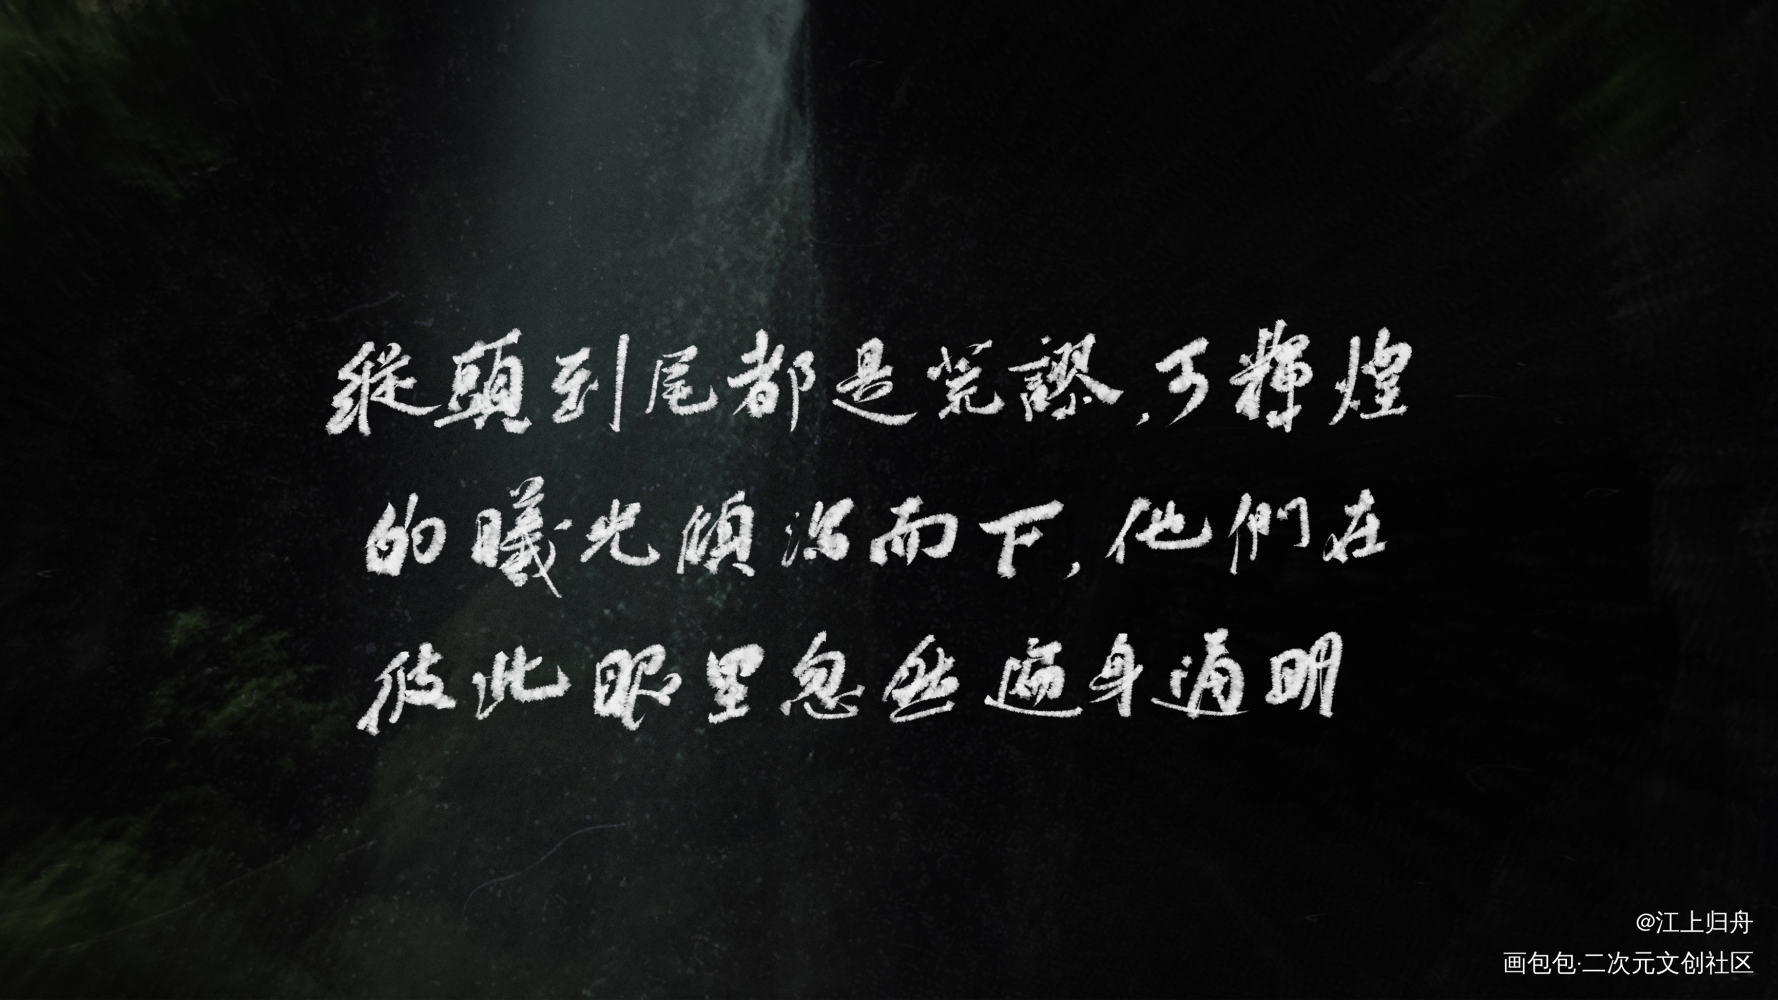 縱頭到尾都是荒謬,可輝煌
的曦光傾瀉而下,他們在
彼此眼里忽然遍身通明
@江上归舟
画包包·二次元文创社区